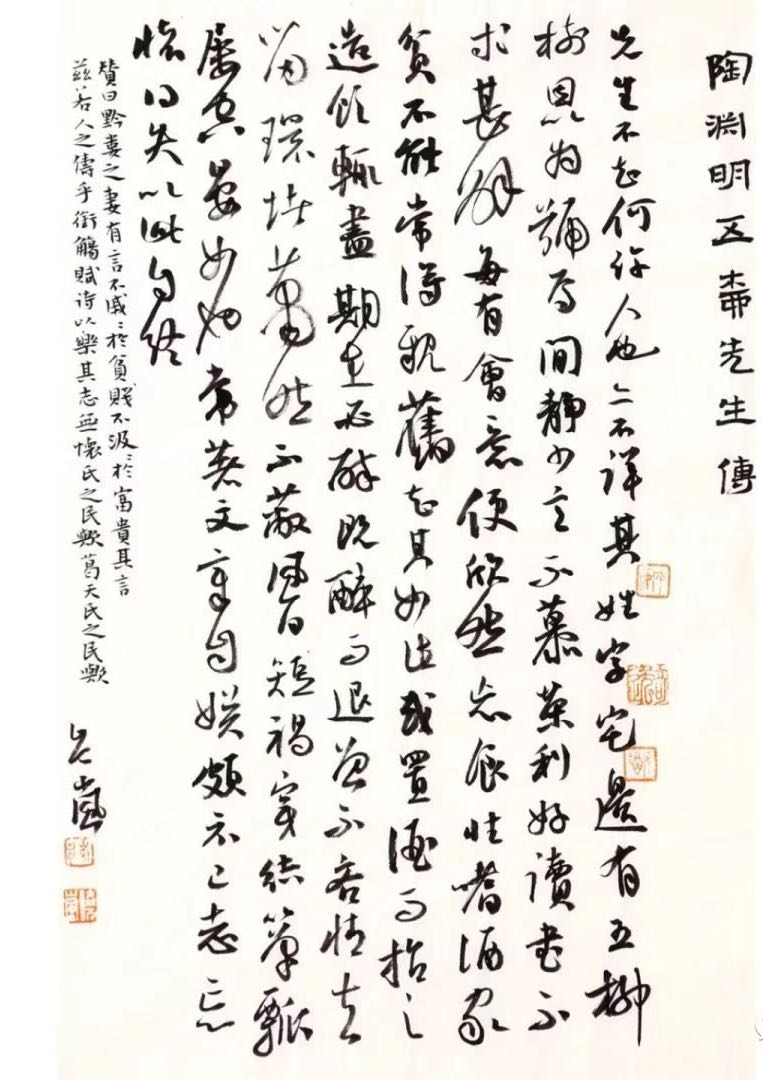 陶渊明五桺先生傳
先生不知何許人也亦不詳其姓字宅邊有五柳
樹因為號焉間靜少言不慕榮利好讀書不
求甚解每有會意便欣然忘食性嗜酒家
貧不能常得親舊知其如此或置酒而招之
造飲輒盡期在必醉既醉而退曾不吝情去
留環堵蕭然不蔽風日短褐穿結簞瓢
屢空晏如也常著文章自娛頗示己志忘
懷得失以此自終
贊曰黔婁之妻有言不戚〻於貧賤不汲〻於富貴其言
茲若人之儔乎銜觴賦诗以樂其志無懷氏之民歟葛天氏之民歟